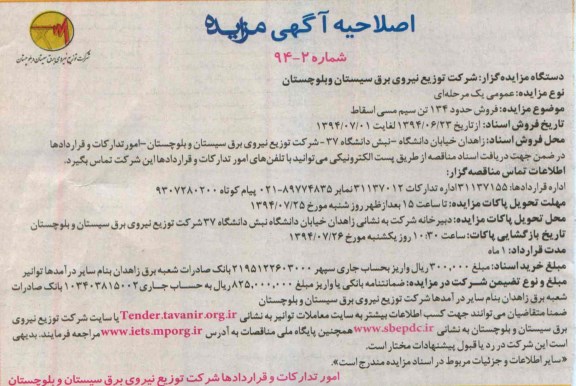 اصلاحیه آگهی مزایده
شماره ۲-۹۴
شرکت توزیع نیروی برق سیستان و بلوچستان
دستگاه مزایده گزار: شرکت توزیع نیروی برق سیستان وبلوچستان
نوع مزایده: عمومی یک مرحله‌ای
موضوع مزایده: فروش حدود ۱۳۴ تن سیم مسی اسقاط
تاریخ فروش اسناد: از تاریخ ۱۳۹۴/۰۶/۲۳ لغایت ۱۳۹۴/۰۷/۰۱
محل فروش اسناد: زاهدان خیابان دانشگاه -نبش دانشگاه ۳۷-شرکت توزیع نیروی برق سیستان و بلوچستان -امور تدارکات و قراردادها
در ضمن جهت دریافت اسناد مناقصه از طریق پست الکترونیکی می توانید با تلفن‌های امور تدارکات و قراردادها این شرکت تماس بگیرد.
اطلاعات تماس مناقصه گزار:
اداره قراردادها: ۳۱۱۳۷۱۵۵ اداره تدارکات ۳۱۱۳۷۰۱۲ نمابر ۸۹۷۷۴۸۳۵-۰۲۱ پیام کوتاه ۹۳۰۷۲۸۰۲۰۰
مهلت تحویل پاکات مزایده: تا ساعت ۱۵ بعدازظهر روز شنبه مورخ ۱۳۹۴/۰۷/۲۵
محل تحویل پاکات مزایده: دبیرخانه شرکت به نشانی زاهدان خیابان دانشگاه نبش دانشگاه ۳۷ شرکت توزیع نیروی برق سیستان و بلوچستان
تاریخ بازگشایی پاکات: ساعت ۱۰:۳۰ روز یکشنبه مورخ ۱۳۹۴/۰۷/۲۶
مدت قرارداد: ۱ ماه
مبلغ خرید اسناد: مبلغ ۳۰۰,۰۰۰ ریال واریز بحساب جاری سپهر ۲۱۹۵۱۲۲۶۰۳۰۰۰ بانک صادرات شعبه برق زاهدان بنام سایر درآمدها توانیر
مبلغ و نوع تضمین شرکت در مزایده: ضمانتنامه بانکی یا واریز مبلغ ۸۲۵,۰۰۰,۰۰۰ ریال به حساب جاری ۱۰۳۴۰۳۸۱۵۰۰۲ بانک صادرات
شعبه برق زاهدان بنام سایر در آمدها شرکت توزیع نیروی برق سیستان و بلوچستان
ضمنا متقاضیان می توانند جهت کسب اطلاعات بیشتر به سایت معاملات توانیر به نشانی Tender.tavanir.org.ir یا سایت شرکت توزیع نیروی
برق سیستان و بلوچستان به نشانی www.sbepdc.ir همچنین پایگاه ملی مناقصات به آدرس www.iets.mporg.ir مراجعه فرمایند. بدیهی
است این شرکت در رد یا قبول پیشنهادات مختار است.
«سایر اطلاعات و جزئیات مربوط در اسناد مزایده مندرج است».
امور تدارکات و قراردادها شرکت توزیع نیروی برق سیستان و بلوچستان